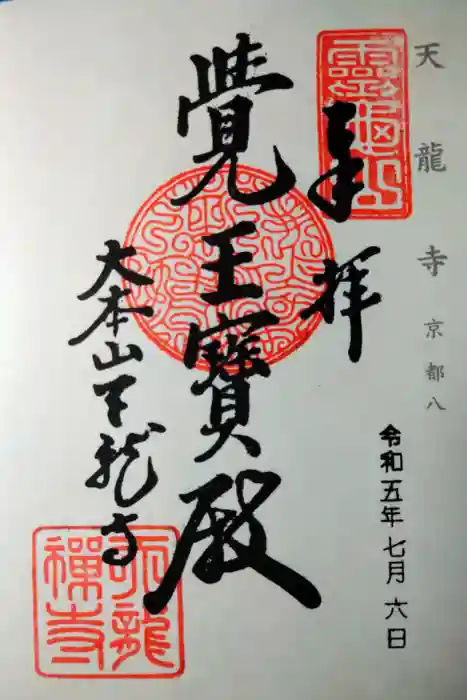 天龍寺 京都八
霊亀山
奉拝
令和五年七月六日
覺王寶殿
大本山天龍寺
天龍禅寺